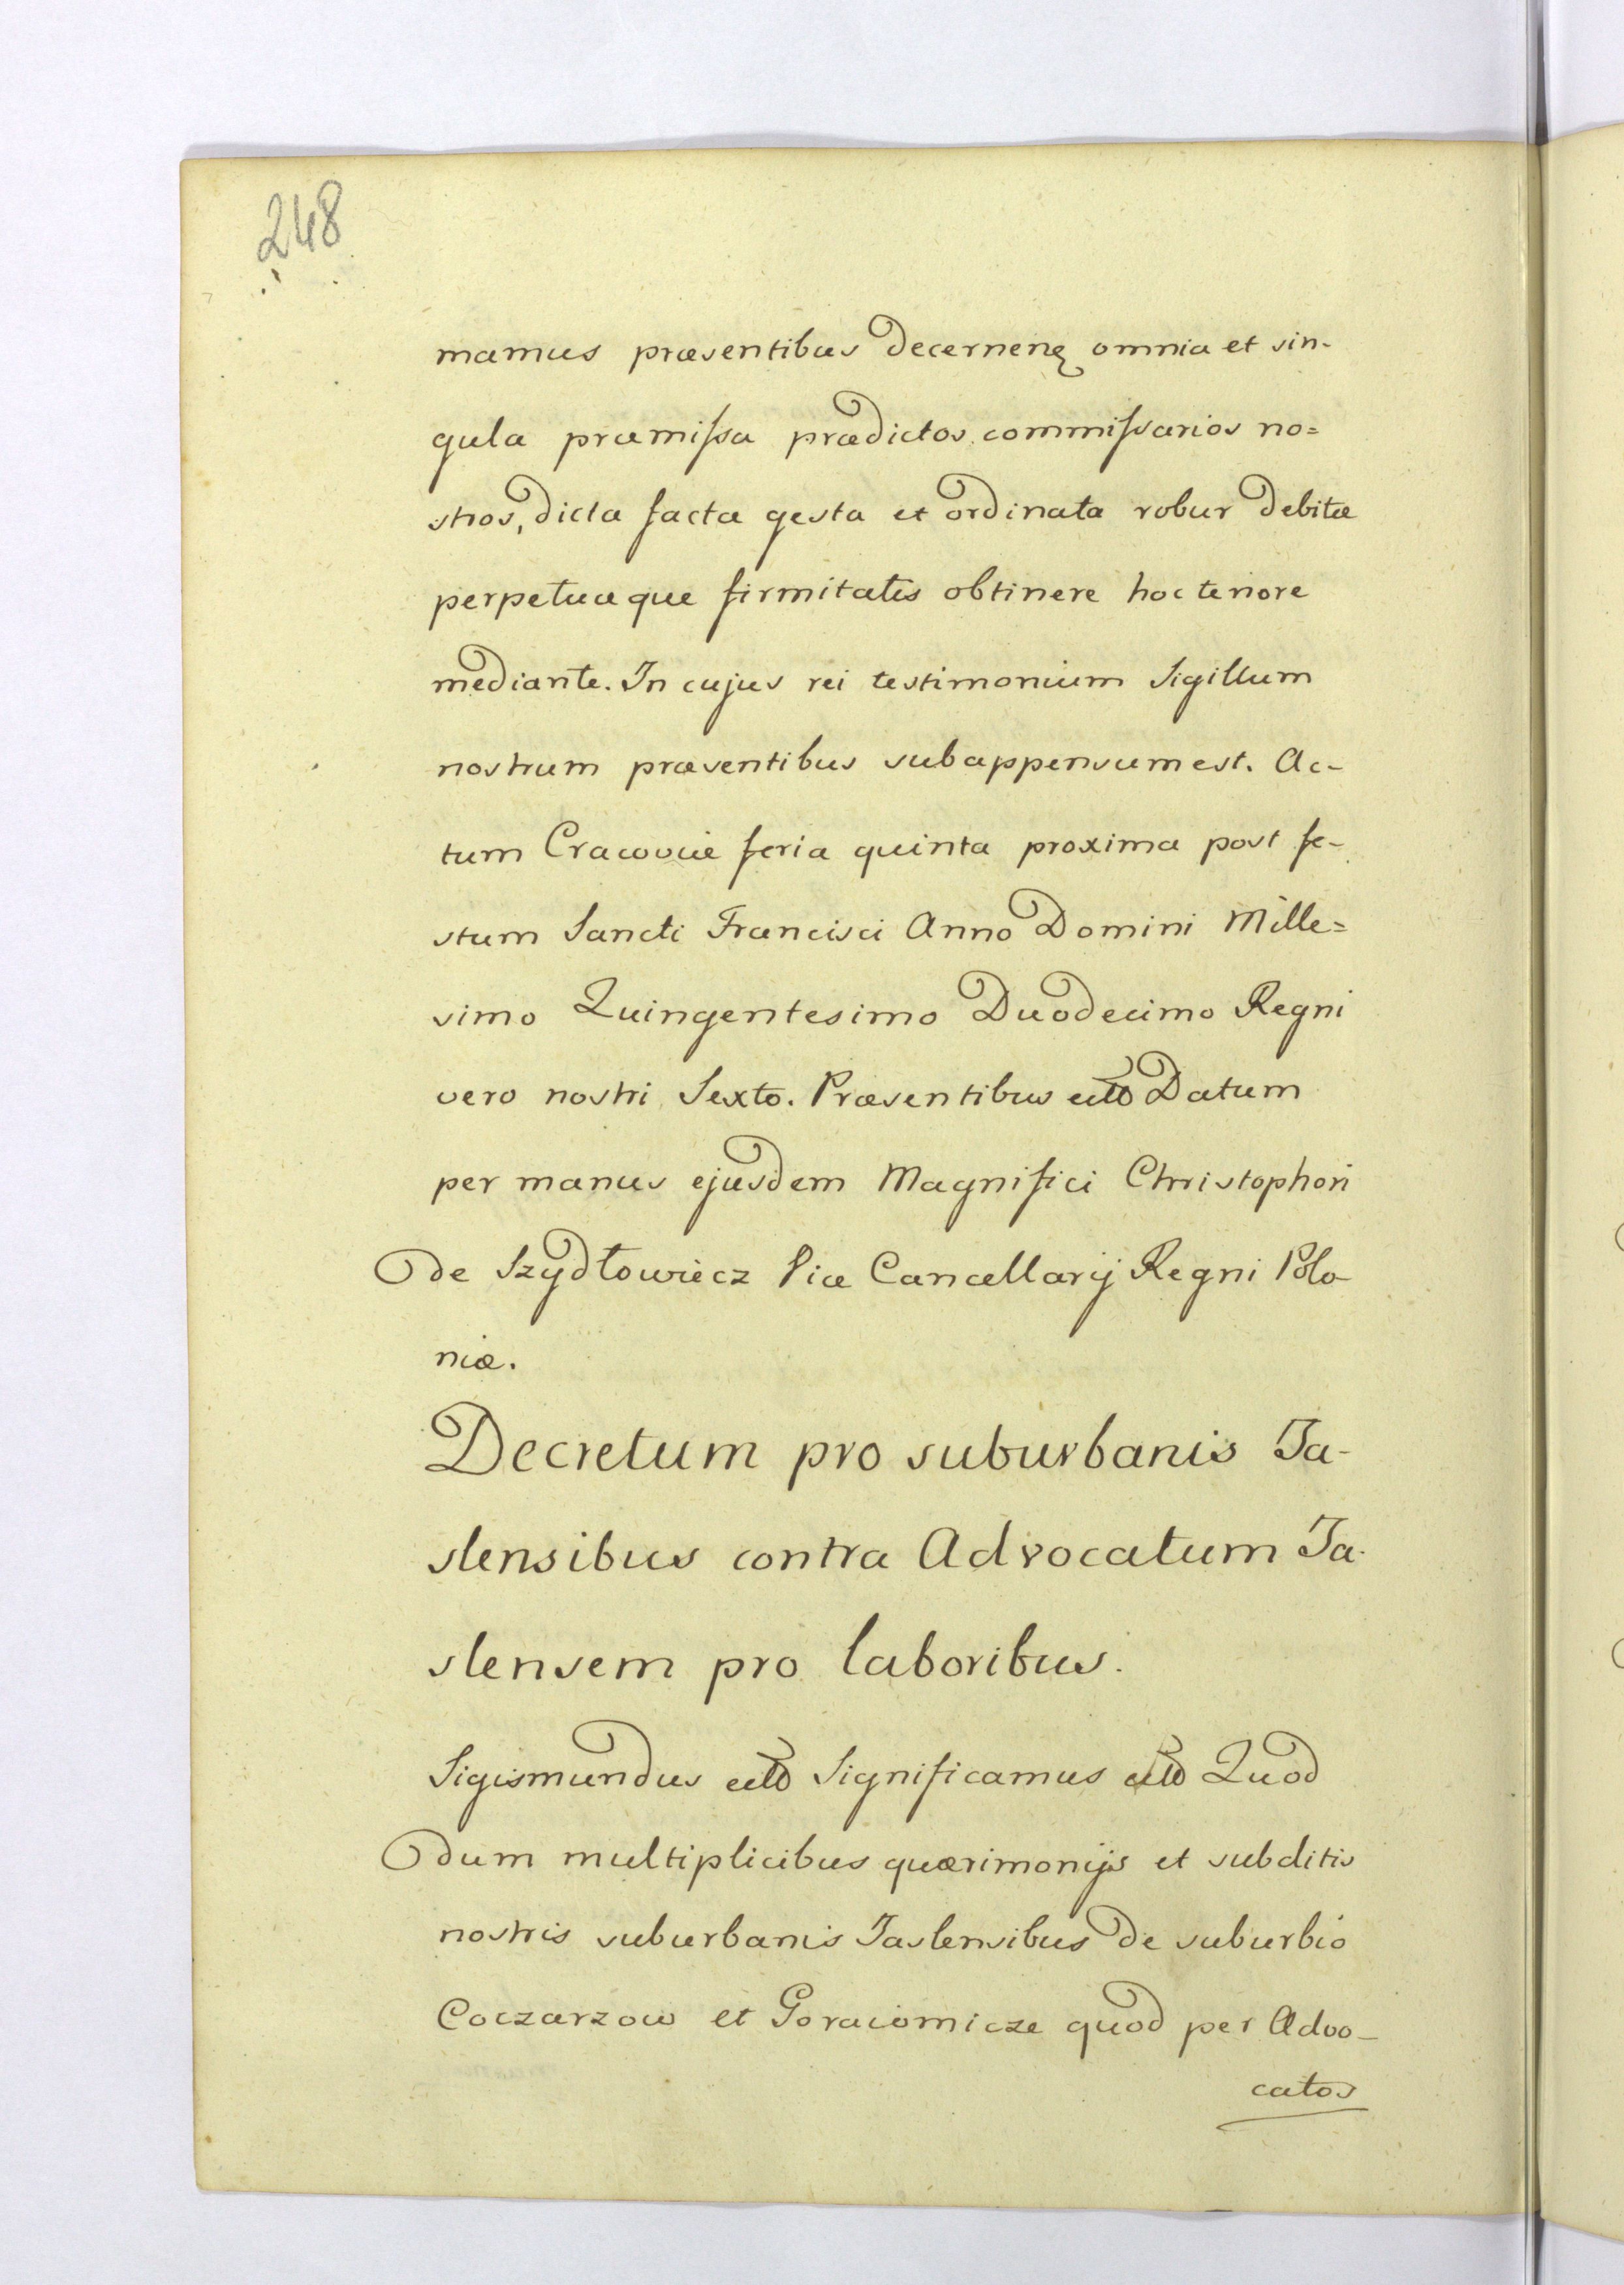 248
mamus præsentibus decernenꝫ omnia et sin-
gula præmiſsa prædictos commiſsarios no=
stros, dicta facta gesta et ordinata robur debitæ
perpetuæque firmitatis obtinere hoc tenore
mediante. In cujus rei testimonium Sigillum
nostrum præsentibus subappensum est. Ac-
tum Cracoviæ feria quinta proxima post fe-
stum Sancti Francisci Anno Domini Mille=
simo Quingentesimo Duodecimo Regni
vero nostri Sexto. Præsentibus Datum
per manus ejusdem Magnifici Christophori
de Szydłowiecz Vice Cancellarij Regni Polo-
niæ.
Decretum pro suburbanis Ja-
slensibus contra Advocatum Ja-
slensem pro laboribus.
Sigismundus Significamus Quod
dum multiplicibus quærimonijs et subditis
nostris suburbanis Jaslensibus de suburbio
Coczarzow et Goraiomicze quod per Advo-
catos